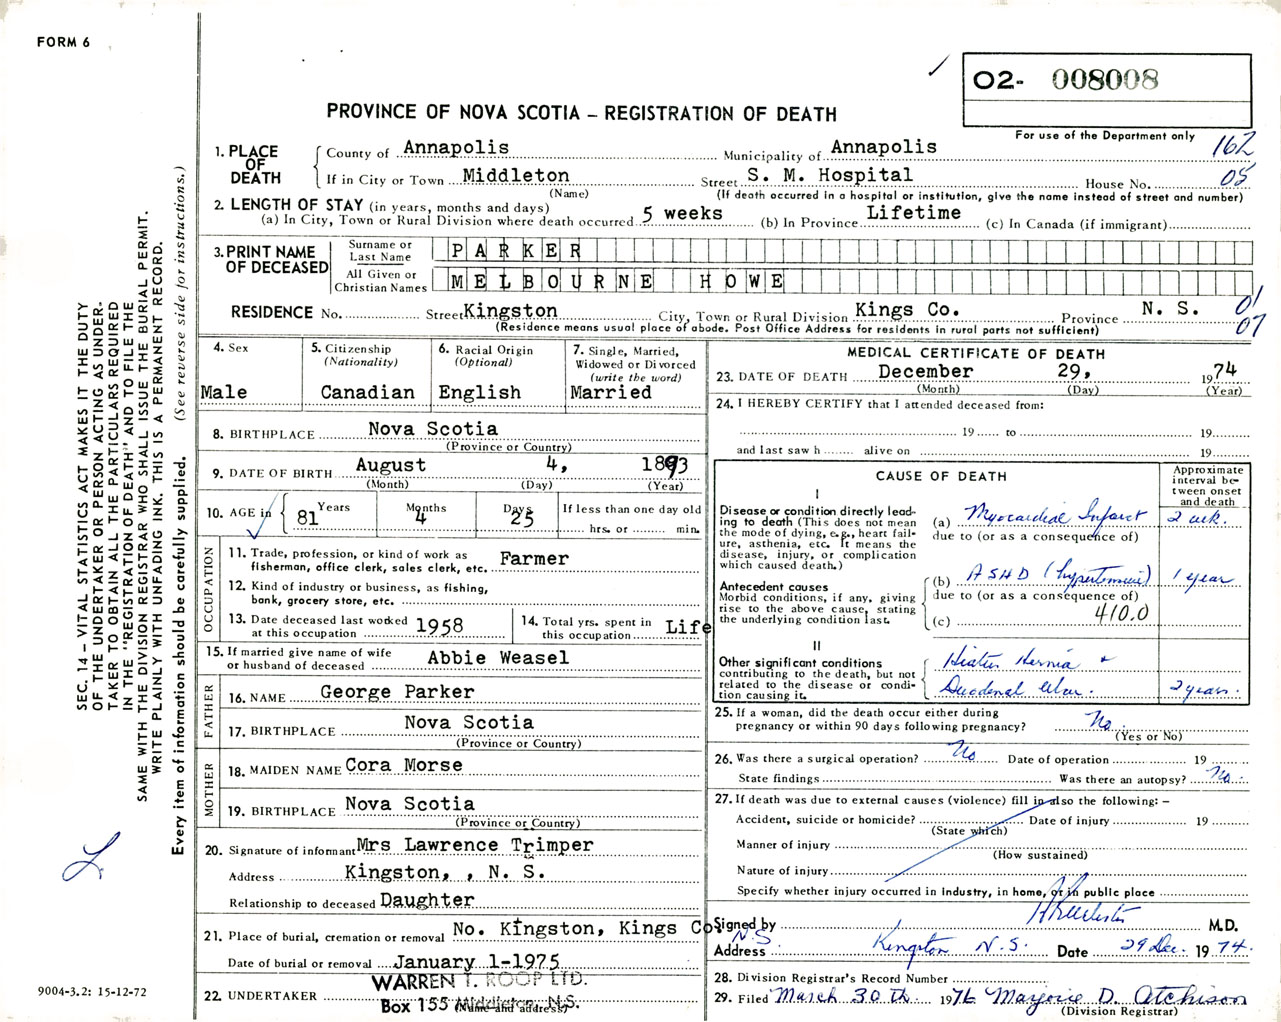 FORM 6
O2- 008008
PROVINCE OF NOVA SCOTIA – REGISTRATION OF DEATH
For use of the Department only
162
05
1. PLACE OF DEATH
County of Annapolis Municipality of Annapolis
If in City or Town Middleton Street S. M. Hospital House No.
(Name) (If death occurred in a hospital or institution, give the name instead of street and number)
2. LENGTH OF STAY (in years, months and days)
(a) In City, Town or Rural Division where death occurred 5 weeks (b) In Province Lifetime (c) In Canada (if immigrant)
3. PRINT NAME OF DECEASED
Surname or Last Name PARKER
All Given or Christian Names MELBOURNE HOWE
RESIDENCE No. Street Kingston City, Town or Rural Division Kings Co. Province N. S.
01
07
(Residence means usual place of abode. Post Office Address for residents in rural parts not sufficient)
4. Sex
Male
5. Citizenship
(Nationality)
Canadian
6. Racial Origin
(Optional)
English
7. Single, Married,
Widowed or Divorced
(write the word)
Married
8. BIRTHPLACE Nova Scotia
(Province or Country)
9. DATE OF BIRTH August 4, 1893
(Month) (Day) (Year)
10. AGE in
Years 81
Months 4
Days 25
If less than one day old
hrs. or min.
OCCUPATION
11. Trade, profession, or kind of work as
fisherman, office clerk, sales clerk, etc. Farmer
12. Kind of industry or business, as fishing,
bank, grocery store, etc.
13. Date deceased last worked
at this occupation 1958
14. Total yrs. spent in
this occupation Life
15. If married give name of wife
or husband of deceased Abbie Weasel
FATHER
16. NAME George Parker
17. BIRTHPLACE Nova Scotia
(Province or Country)
MOTHER
18. MAIDEN NAME Cora Morse
19. BIRTHPLACE Nova Scotia
(Province or Country)
20. Signature of informant Mrs Lawrence Trimper
Address Kingston, , N. S.
Relationship to deceased Daughter
21. Place of burial, cremation or removal No. Kingston, Kings Co.
N.S
Date of burial or removal January 1-1975
22. UNDERTAKER WARREN T. ROOP LTD.
Box 155 Middleton, N.S.
(Name and address)
MEDICAL CERTIFICATE OF DEATH
23. DATE OF DEATH December 29, 1974
(Month) (Day) (Year)
24. I HEREBY CERTIFY that I attended deceased from:
19 to 19
and last saw h alive on 19
CAUSE OF DEATH
Approximate interval between onset and death
I
Disease or condition directly leading to death (This does not mean the mode of dying, e.g., heart failure, asthenia, etc. It means the disease, injury, or complication which caused death.)
(a) Myocardial Infarct 2 wk.
due to (or as a consequence of)
Antecedent causes
Morbid conditions, if any, giving rise to the above cause, stating the underlying condition last.
(b) ASHD (hypertensive) 1 year
due to (or as a consequence of)
410.0
(c)
II
Other significant conditions
contributing to the death, but not related to the disease or condition causing it.
Hiatus Hernia +
Duodenal ulcer. 2 years.
25. If a woman, did the death occur either during
pregnancy or within 90 days following pregnancy? No
(Yes or No)
26. Was there a surgical operation? No Date of operation 19
State findings Was there an autopsy? No
27. If death was due to external causes (violence) fill in also the following: –
Accident, suicide or homicide? Date of injury 19
(State which)
Manner of injury
(How sustained)
Nature of injury
Specify whether injury occurred in industry, in home, or in public place
Signed by M.D.
Address Kingston N.S. Date 29 Dec. 1974.
28. Division Registrar's Record Number
29. Filed March 30th 1976 Marjorie D. Atchison
(Division Registrar)
SEC. 14 – VITAL STATISTICS ACT MAKES IT THE DUTY
OF THE UNDERTAKER OR PERSON ACTING AS UNDER-
TAKER TO OBTAIN ALL THE PARTICULARS REQUIRED
IN THE "REGISTRATION OF DEATH" AND TO FILE THE
SAME WITH THE DIVISION REGISTRAR WHO SHALL ISSUE THE BURIAL PERMIT.
WRITE PLAINLY WITH UNFADING INK. THIS IS A PERMANENT RECORD.
Every item of information should be carefully supplied. (See reverse side for instructions.)
9004-3.2: 15-12-72